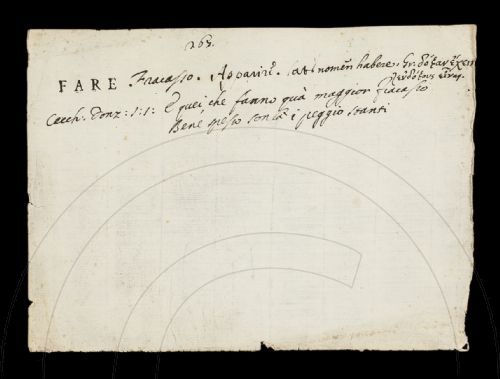 265.
FARE Fracasso. Apparire. Lat: nomen habere. Gr. δόξαν ἔχειν
Cecch. Donz: 1:1: E quei, che fanno quà maggior fracasso
Bene spesso son i peggio stanti